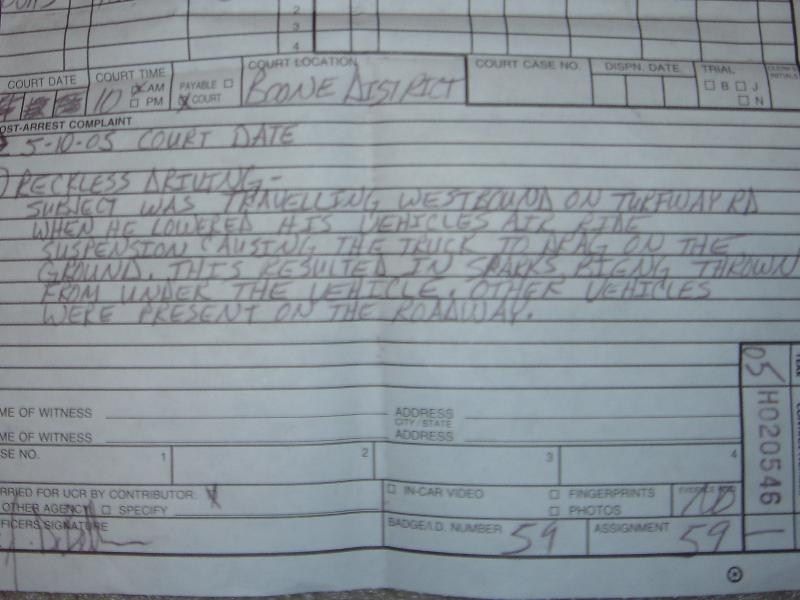 2
3
4
COURT DATE COURT TIME 10 AM PM PAYABLE COURT COURT LOCATION BOONE DISTRICT COURT CASE NO. DISPN. DATE TRIAL B J N
OST-ARREST COMPLAINT
5-10-05 COURT DATE
) RECKLESS DRIVING-
SUBJECT WAS TRAVELLING WESTBOUND ON TURFWAY RD
WHEN HE LOWERED HIS VEHICLES AIR RIDE
SUSPENSION CAUSING THE TRUCK TO DRAG ON THE
GROUND. THIS RESULTED IN SPARKS BIENG THROWN
FROM UNDER THE VEHICLE. OTHER VEHICLES
WERE PRESENT ON THE ROADWAY.
05 H020546 1
ME OF WITNESS ADDRESS
CITY/STATE
ME OF WITNESS ADDRESS
SE NO. 1 2 3 4
RRIED FOR UCR BY CONTRIBUTOR: X IN-CAR VIDEO FINGERPRINTS
OTHER AGENCY SPECIFY PHOTOS
FFICERS SIGNATURE BADGE/I.D. NUMBER 59 ASSIGNMENT 59